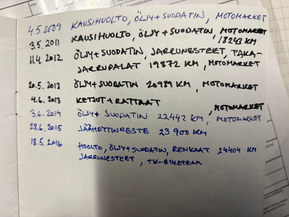 4.5.2009 KAUSIHUOLTO, ÖLJY+SUODATIN, MOTOMARKET
3.5.2011 KAUSIHUOLTO, ÖLJY+SUODATIN, MOTOMARKET / 18243 KM
11.4.2012 ÖLJY+SUODATIN, JARRUNESTEET, TAKA-
JARRUPALAT 19872 KM, MOTOMARKET
20.5.2013 ÖLJY+SUODATIN 20989 KM, MOTOMARKET
4.6.2013 KETJUT+RATTAAT
3.6.2014 ÖLJY+SUODATIN 22442 KM, MOTOMARKET
28.6.2015 JÄÄHDYTINNESTE 23900 KM
18.5.2016 HUOLTO, ÖLJY+SUODATIN, RENKAAT 24404 KM
JARRUNESTEET, TK-BIKETEAM